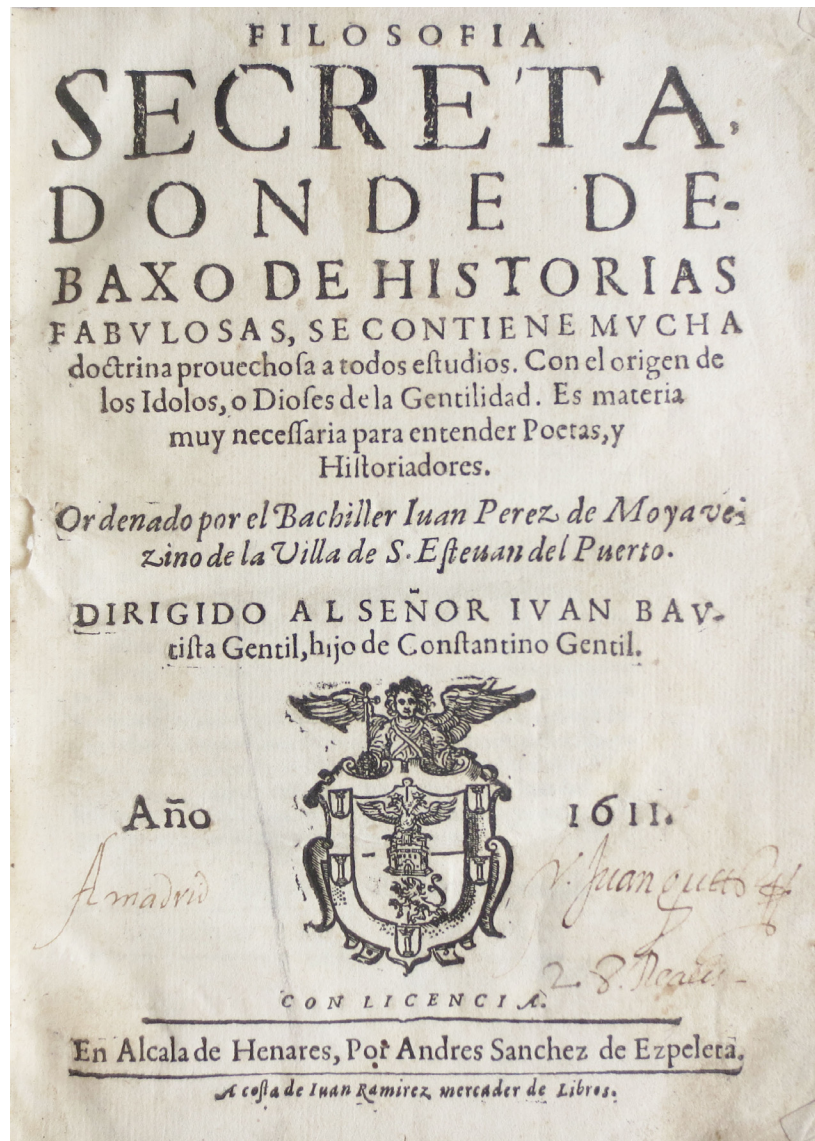 FILOSOFIA
SECRETA,
DONDE DE-
BAXO DE HISTORIAS
FABVLOSAS, SE CONTIENE MVCHA
doctrina prouechoſa a todos eſtudios. Con el origen de
los Idolos, o Dioſes de la Gentilidad. Es materia
muy neceſſaria para entender Poetas, y
Hiſtoriadores.
Ordenado por el Bachiller Iuan Perez de Moya vezi
zino de la Villa de S. Eſteuan del Puerto.
DIRIGIDO AL SEÑOR IVAN BAV-
tiſta Gentil, hijo de Conſtantino Gentil.
Año 1611.
Amadrid
28. Reales
CON LICENCIA.
En Alcala de Henares, Por Andres Sanchez de Ezpeleta.
A coſta de Iuan Ramirez mercader de Libros.